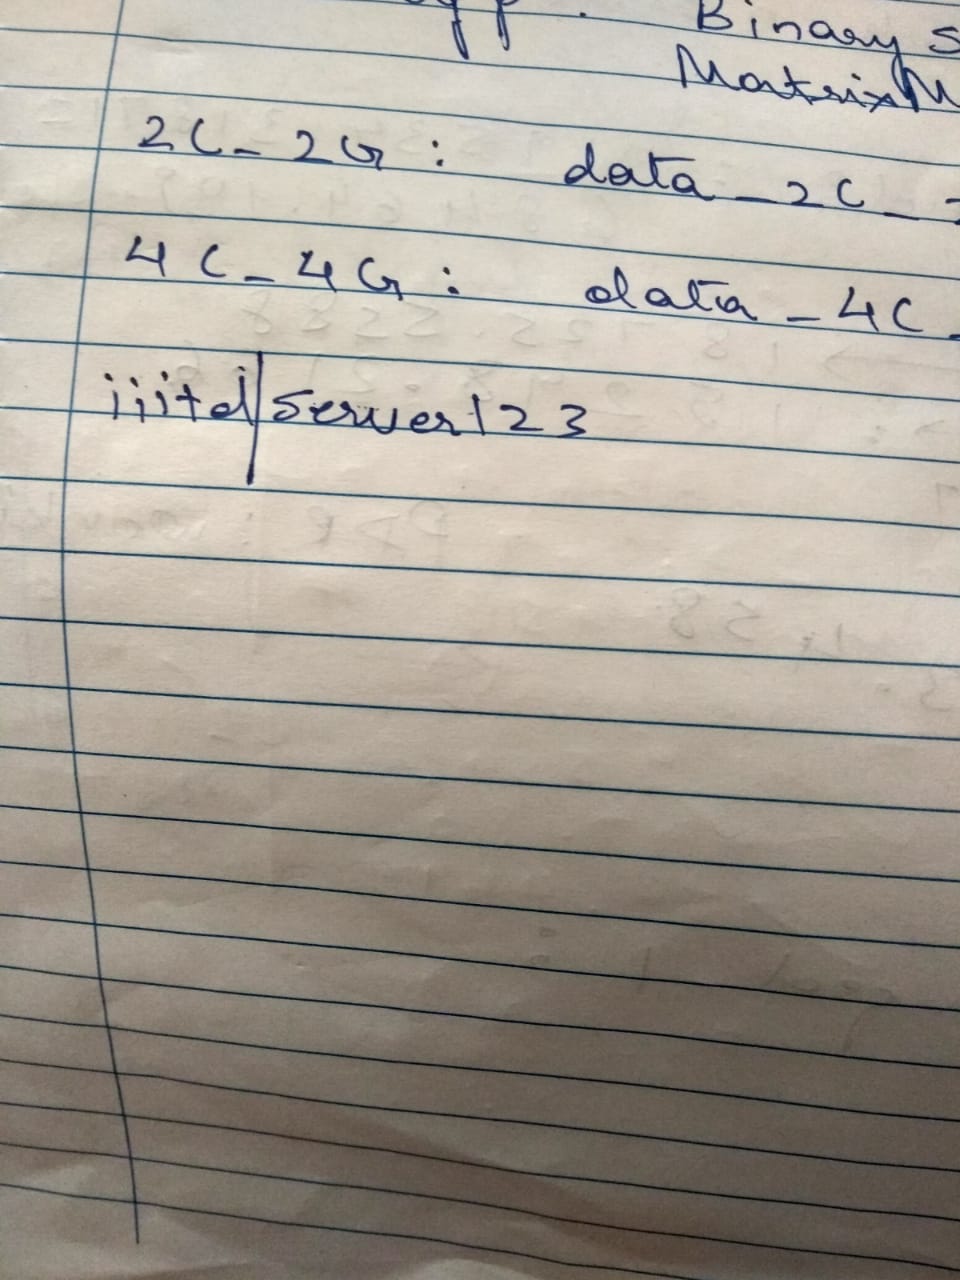 Binary
Matrix
2C_2G : data_2C_
4C_4G : data_4C_
iiitd|server123